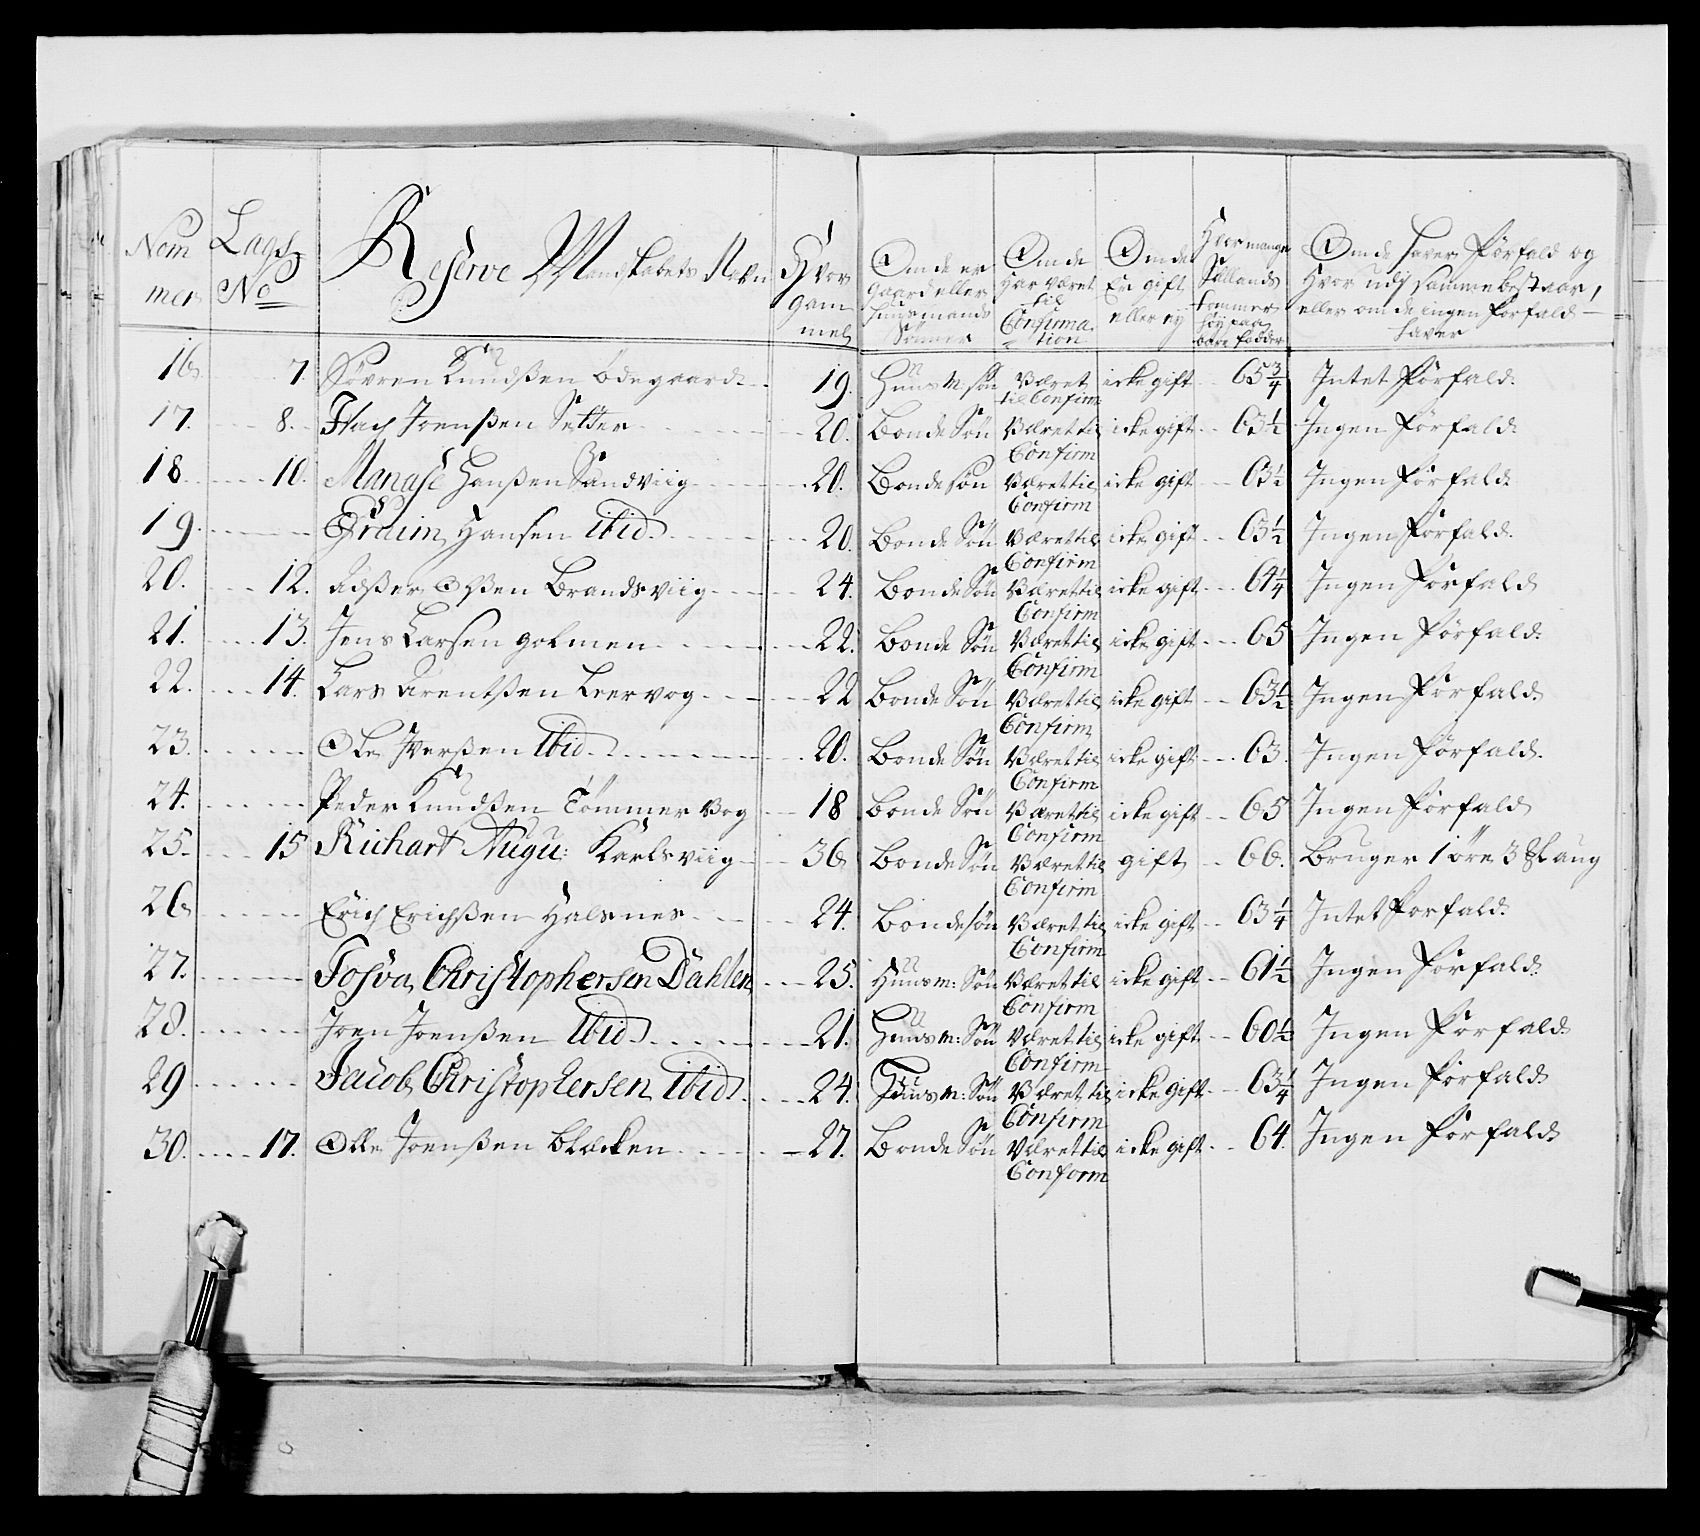 Nommer Lags No Reserve Mandskabets Nafn Hvor gammel Om de er gaard eller huusmands Sønner Om de har været til Confirmation Om de Er gift eller ey Hvor mange Siællands tommer høy paa bare fødder Om de haver Forfald og Hvor udj samme bestaar, eller om de ingen forfald haver
16. 7. Søvren Knudßen Ødegaard 19. Huusm: søn Været til Confirm icke gift 65 3/4 Intet Forfald.
17. 8. Joenßen Setter 20. Bonde Søn Været til Confirm icke gift 63 1/2 Ingen Forfald.
18 10. Manase Hanßen Sandviig 20. Bonde søn Været til Confirm icke gift 63 1/2 Ingen Forfald.
19. Efraim Hansen Ibid. 20. Bonde Søn Været til Confirm icke gift 63 1/2 Ingen Forfald.
20. 12. Adßer Olßen Brandsviig 24. Bonde Søn Været til Confirm icke gift 61 1/4 Ingen Forfald
21. 13. Jens Larsen Holmen 22. Bonde Søn Været til Confirm icke gift 65 Ingen Forfald.
22. 14. Lars Arentßen Leervog 22 Bonde Søn Været til Confirm icke gift 63 1/2 Ingen Forfald
23. Ole Iverßen Ibid. 20. Bonde Søn Været til Confirm icke gift 63. Ingen Forfald.
24. Peder Knudßen Tömmervog 18 Bonde Søn Været til Confirm icke gift 65 Ingen Forfald
25. 15 Richart Augu: Karlsviig 36 Bonde Søn Været til Confirm gift 66. Bruger 1 öre 3 laug
26 Erich Erichßen Halsnes 24. Bonde søn Været til Confirm icke gift 63 1/4 Intet Forfald.
27. Josva Christophersen Dahlen 25. Huusm: Søn Været til Confirm icke gift 61 1/2 Ingen Forfald.
28. Joen Joenßen Ibid 21. Huusm: Søn Været til Confirm icke gift 60 1/2 Ingen Forfald
29 Jacob Christophersen Ibid 24. Huusm: Søn Været til Confirm icke gift 63 1/4 Ingen Forfald
30. 17. Olle Joenßen Blæcken 27. Bonde Søn Været til Conform icke gift 64. Ingen Forfald